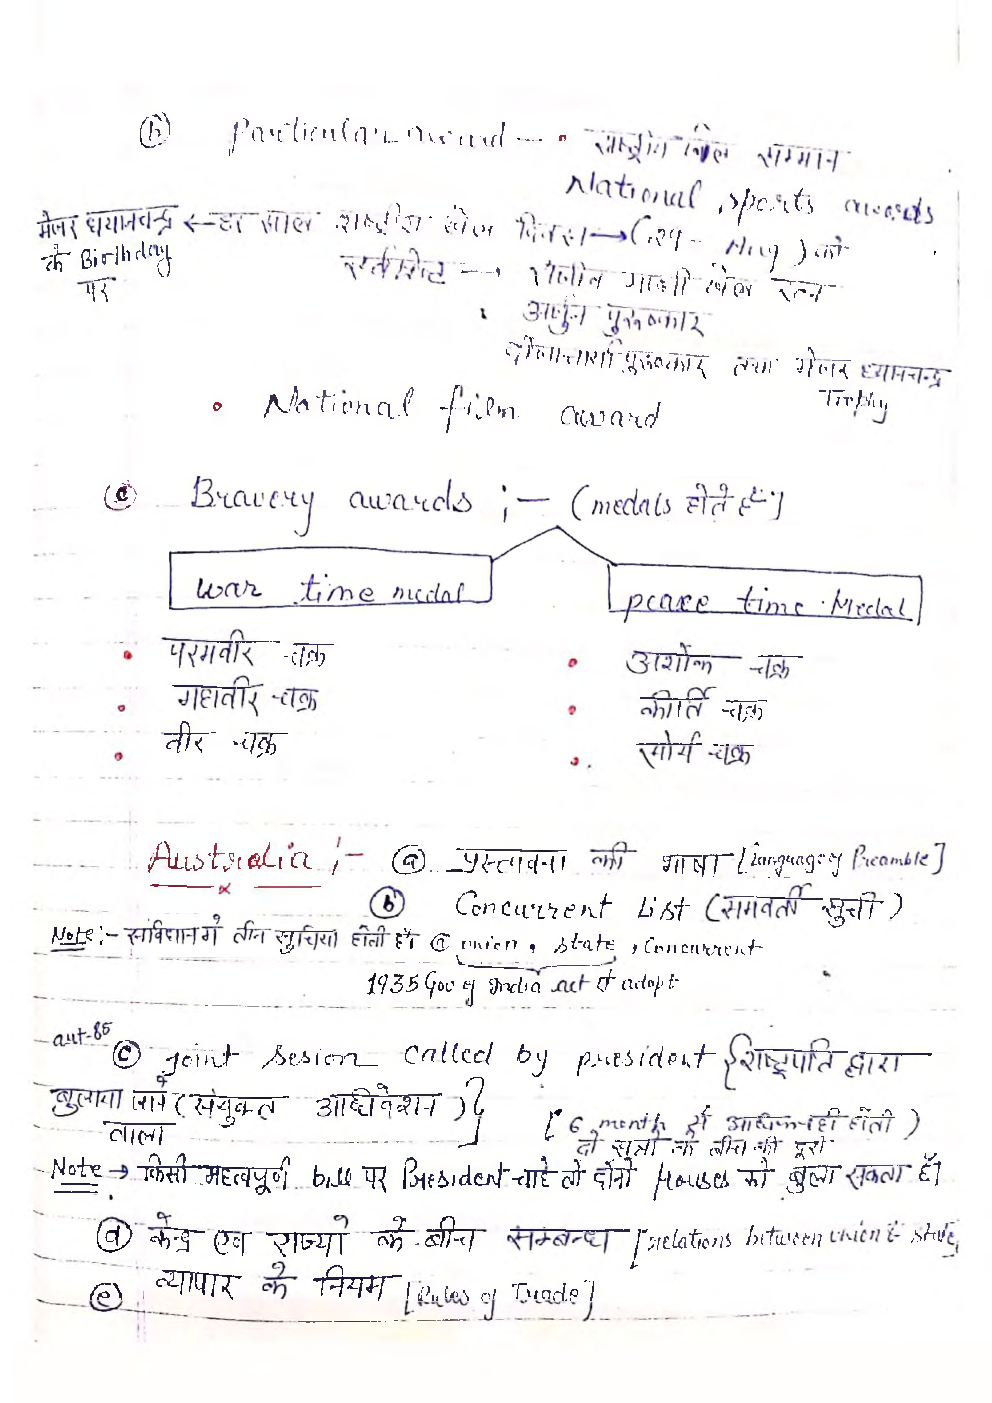 (b) Particular award — • राष्ट्रीय खेल सम्मान
National sports awards
मेजर ध्यानचन्द्र ← हर साल राष्ट्रीय खेल दिवस → (29 - Aug) को
के Birthday
पर
सर्वश्रेष्ठ → राजीव गाँधी खेल रत्न
• अर्जुन पुरूष्कार
पुरूष्कार तथा मेजर ध्यानचन्द्र
Trophy
• National film award
(c) Bravery awards ;— (medals होते हैं)
war time medal
peace time Medal
• परमवीर चक्र
• अशोक चक्र
• महावीर चक्र
• कीर्ति चक्र
• वीर चक्र
• सोर्य चक्र
Australia ;— (a) प्रस्तावना की भाषा [Language of Preamble]
(b) Concurrent List (समवर्ती सूची)
Note :- संविधान में तीन सूचियां होती हैं। @ union, state, Concurrent
1935 Gov of India act से adopt
aut-85
(c) joint sesion called by president {राष्ट्रपति द्वारा
बुलाया जाने (संयुक्त अधिवेशन)}
वाला
[6 month से अधिक नही होती)
दो सत्रो के बीच की दूरी
Note → किसी महत्वपूर्ण bill पर President चाहे तो दोनो Houses को बुला सकता है।
(d) केन्द्र एव राज्यो के बीच सम्बन्ध [relations between union & state]
(e) व्यापार के नियम [Rules of Trade]